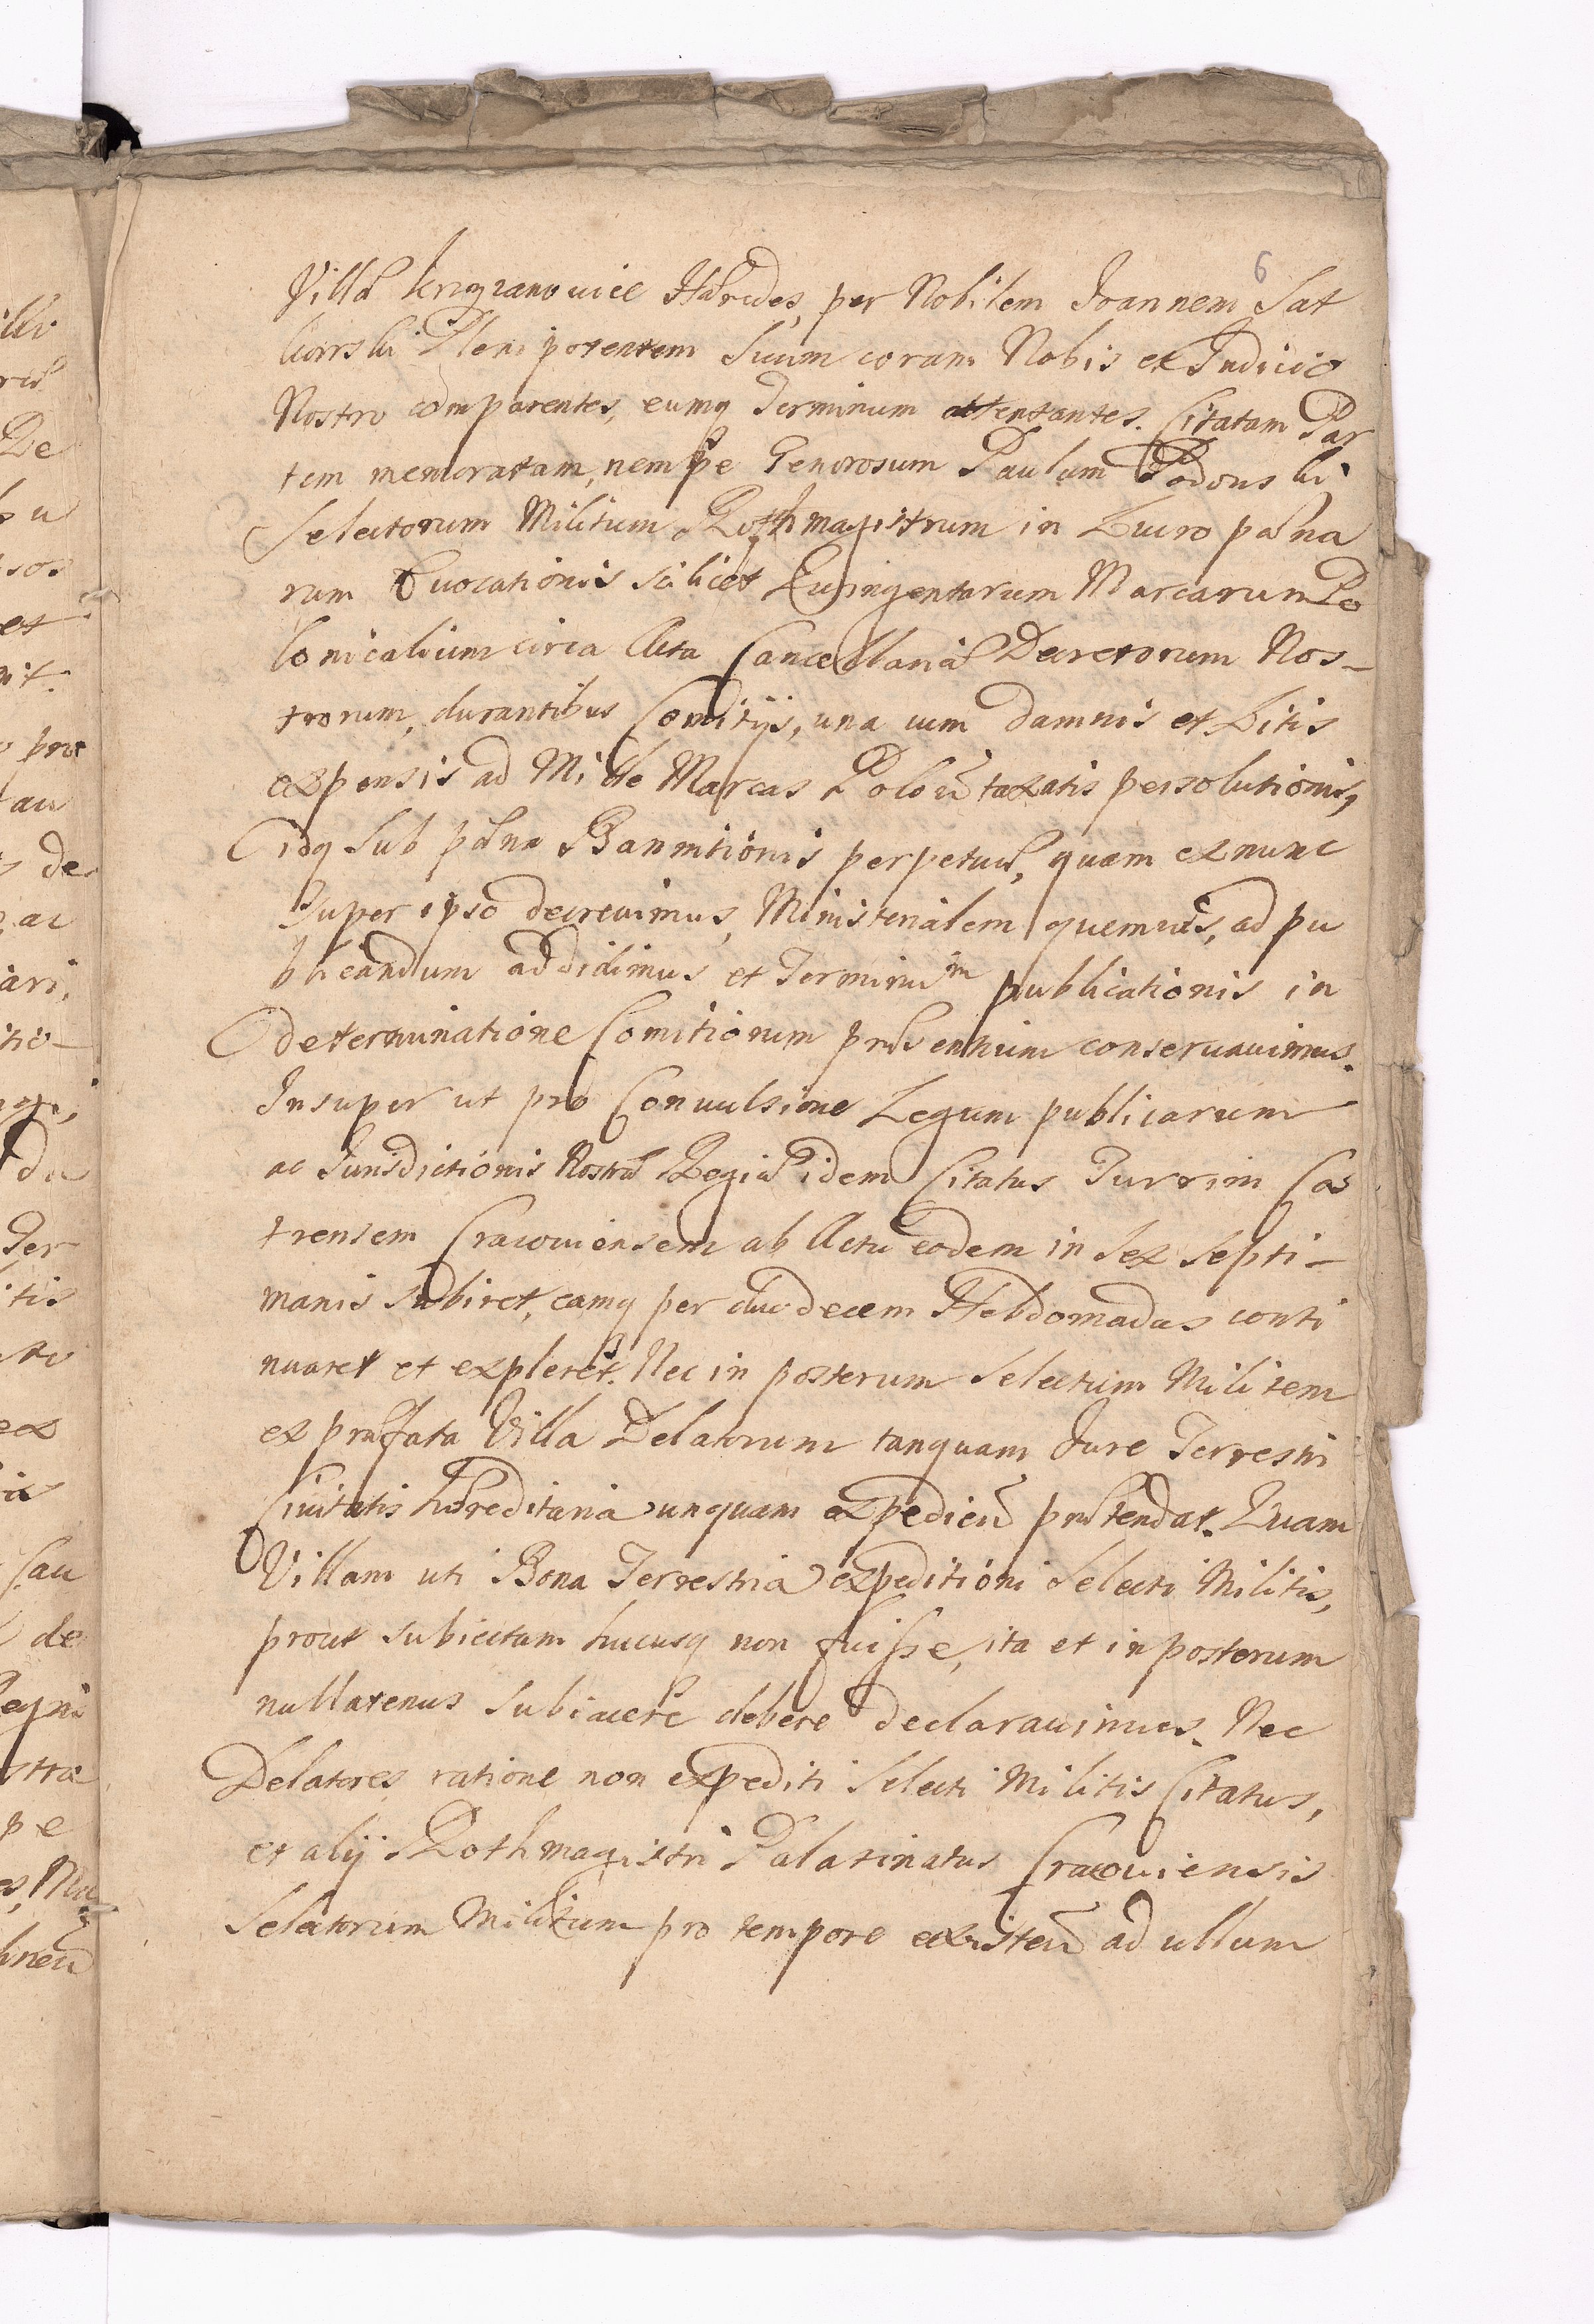 6
Villæ Krzyzanowice Hæredes, per Nobilem Joannem Sat
kowski Plenipotentem Suum coram Nobis et Judicio
Nostro comparentes, eumq Terminum attentantes. Citatam Par
tem memoratam, nempe Generosum Paulum Podonski
Selectorum Militum Rothmagistrum in Lucro pæna
rum Evocationis scilicet Quingentarum Marcarum Po
lonicalium circa Acta Cancellariæ Decretorum Nos-
trorum, durantibus Comitijs, una cum damnis et Litis
expensis ad Mille Marcas Polon taxatis persolutionis,
idq Sub pæna Bannitionis perpetuæ, quam exnunc
super ipso decrevimus, Ministerialem quemvis, ad pu
blicandum addidimus et Terminum publicationis in
determinatione Comitiorum præsentium conservavimus.
Insuper ut pro Convulsione Legum publicarum
ac Jurisdictionis Nostræ Regiæ idem Citatus Turrim Cas
trensem Cracoviensem ab Actu eodem in Sex Septi-
manis subiret, eamq per duodecem Hebdomadas conti
nuaret et expleret. Nec in posterum Selectum Militem
ex præfata Villa Delatorum tanquam Jure Terrestri
Civitatis hæreditaria unquam expedien prætendat. Quam
Villam uti Bona Terrestria expeditioni Selecti Militis,
prout subiectam hucusq non fuisse, ita et in posterum
nullatenus subiacere debere declaravimus. Nec
Delatores ratione non expediti Selecti Militis Citatus,
et alij Rothmagistri Palatinatus Cracoviensis
Selectorum Militum pro tempore existen ad ullum